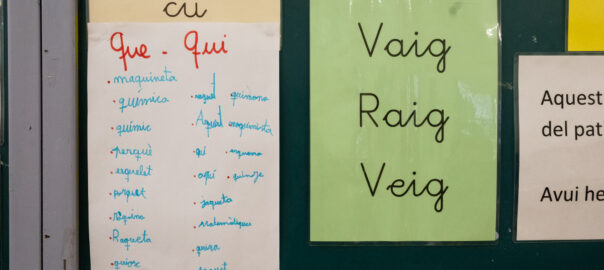 cu
Que - Qui
maquineta
química
químic
perquè
esquelet
parquet
màquina
Raqueta
quiosc
quimono
Aquest maquinista
qui
esquena
aquí
quinze
jaqueta
matemàtiques
Vaig
Raig
Veig
Aquest
del pat
Avui he